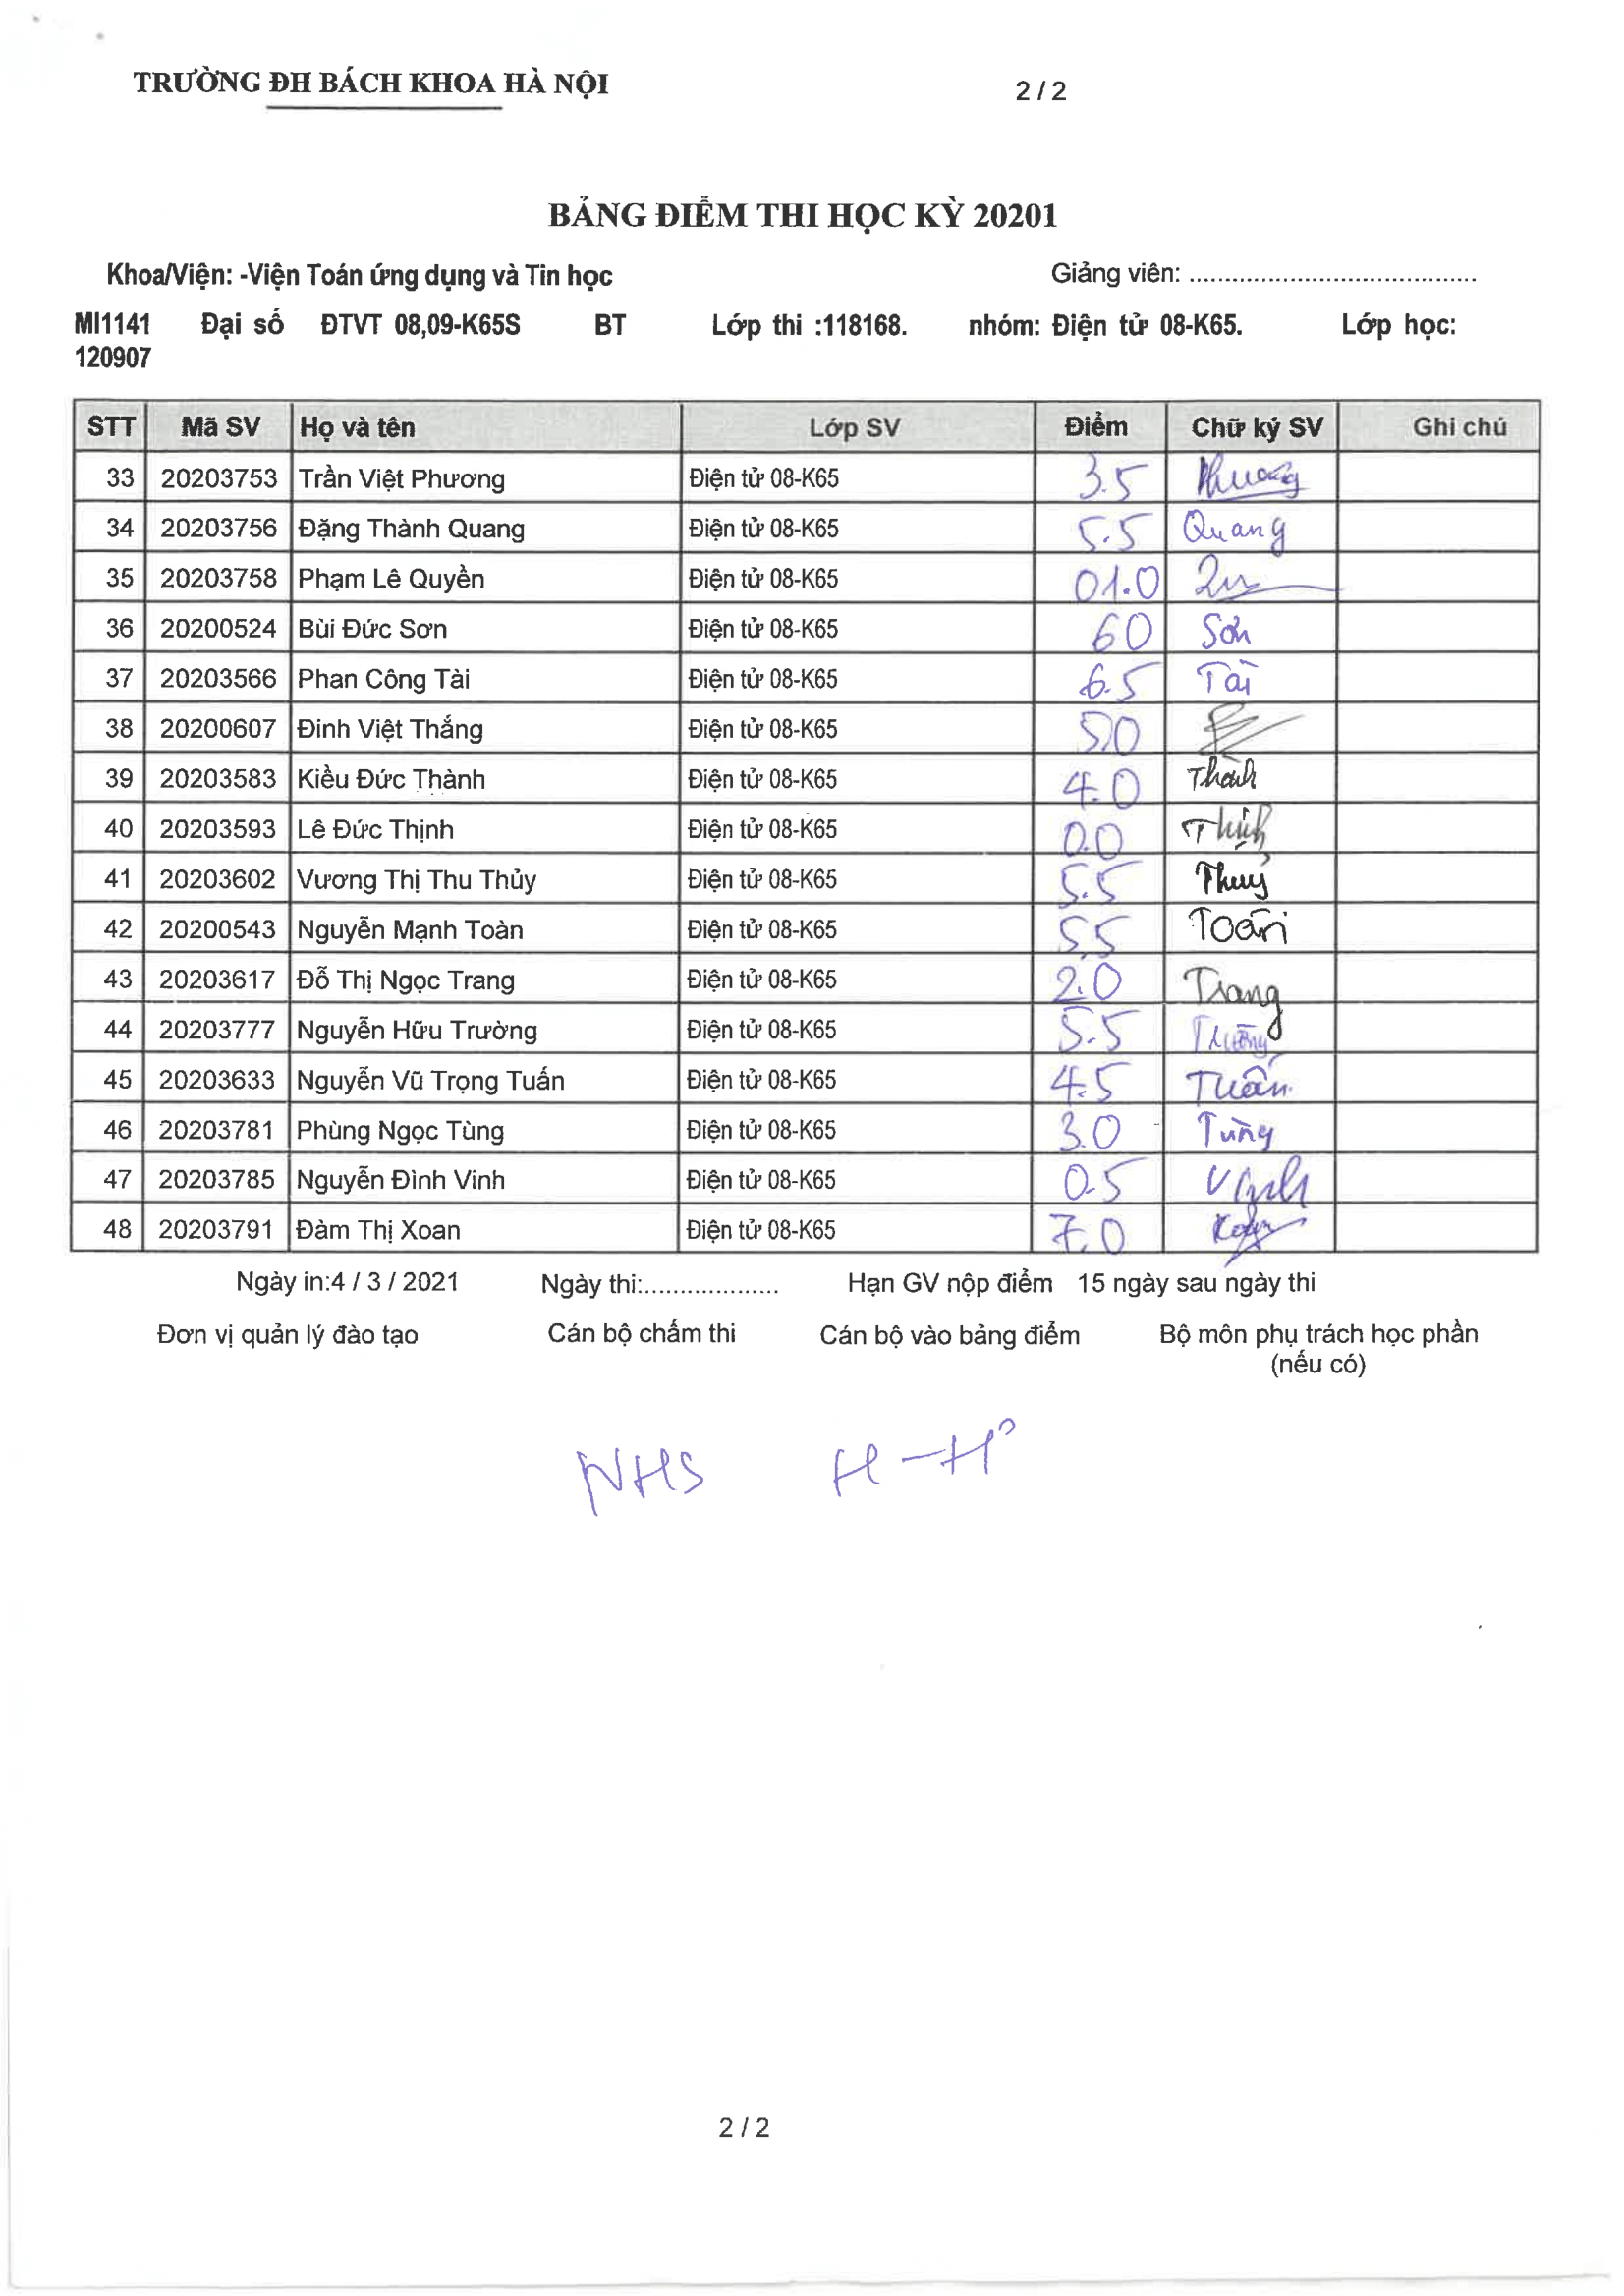 TRƯỜNG ĐH BÁCH KHOA HÀ NỘI 2 / 2
BẢNG ĐIỂM THI HỌC KỲ 20201
Khoa/Viện: -Viện Toán ứng dụng và Tin học Giảng viên: ........................................
MI1141 Đại số ĐTVT 08,09-K65S BT Lớp thi :118168. nhóm: Điện tử 08-K65. Lớp học:
120907
STT Mã SV Họ và tên Lớp SV Điểm Chữ ký SV Ghi chú
33 20203753 Trần Việt Phương Điện tử 08-K65 3.5 Phương
34 20203756 Đặng Thành Quang Điện tử 08-K65 5.5 Quang
35 20203758 Phạm Lê Quyền Điện tử 08-K65 01.0
36 20200524 Bùi Đức Sơn Điện tử 08-K65 60 Sơn
37 20203566 Phan Công Tài Điện tử 08-K65 6.5 Tài
38 20200607 Đinh Việt Thắng Điện tử 08-K65 5.0
39 20203583 Kiều Đức Thành Điện tử 08-K65 4.0 Thành
40 20203593 Lê Đức Thịnh Điện tử 08-K65 0.0 Thịnh
41 20203602 Vương Thị Thu Thủy Điện tử 08-K65 5.5 Thuỷ
42 20200543 Nguyễn Mạnh Toàn Điện tử 08-K65 5.5 Toàn
43 20203617 Đỗ Thị Ngọc Trang Điện tử 08-K65 2.0 Trang
44 20203777 Nguyễn Hữu Trường Điện tử 08-K65 5.5 Trường
45 20203633 Nguyễn Vũ Trọng Tuấn Điện tử 08-K65 4.5 Tuấn
46 20203781 Phùng Ngọc Tùng Điện tử 08-K65 3.0 Tùng
47 20203785 Nguyễn Đình Vinh Điện tử 08-K65 0.5 Vinh
48 20203791 Đàm Thị Xoan Điện tử 08-K65 7.0 Xoan
Ngày in:4 / 3 / 2021 Ngày thi:................... Hạn GV nộp điểm 15 ngày sau ngày thi
Đơn vị quản lý đào tạo Cán bộ chấm thi Cán bộ vào bảng điểm Bộ môn phụ trách học phần
(nếu có)
NHS
2 / 2